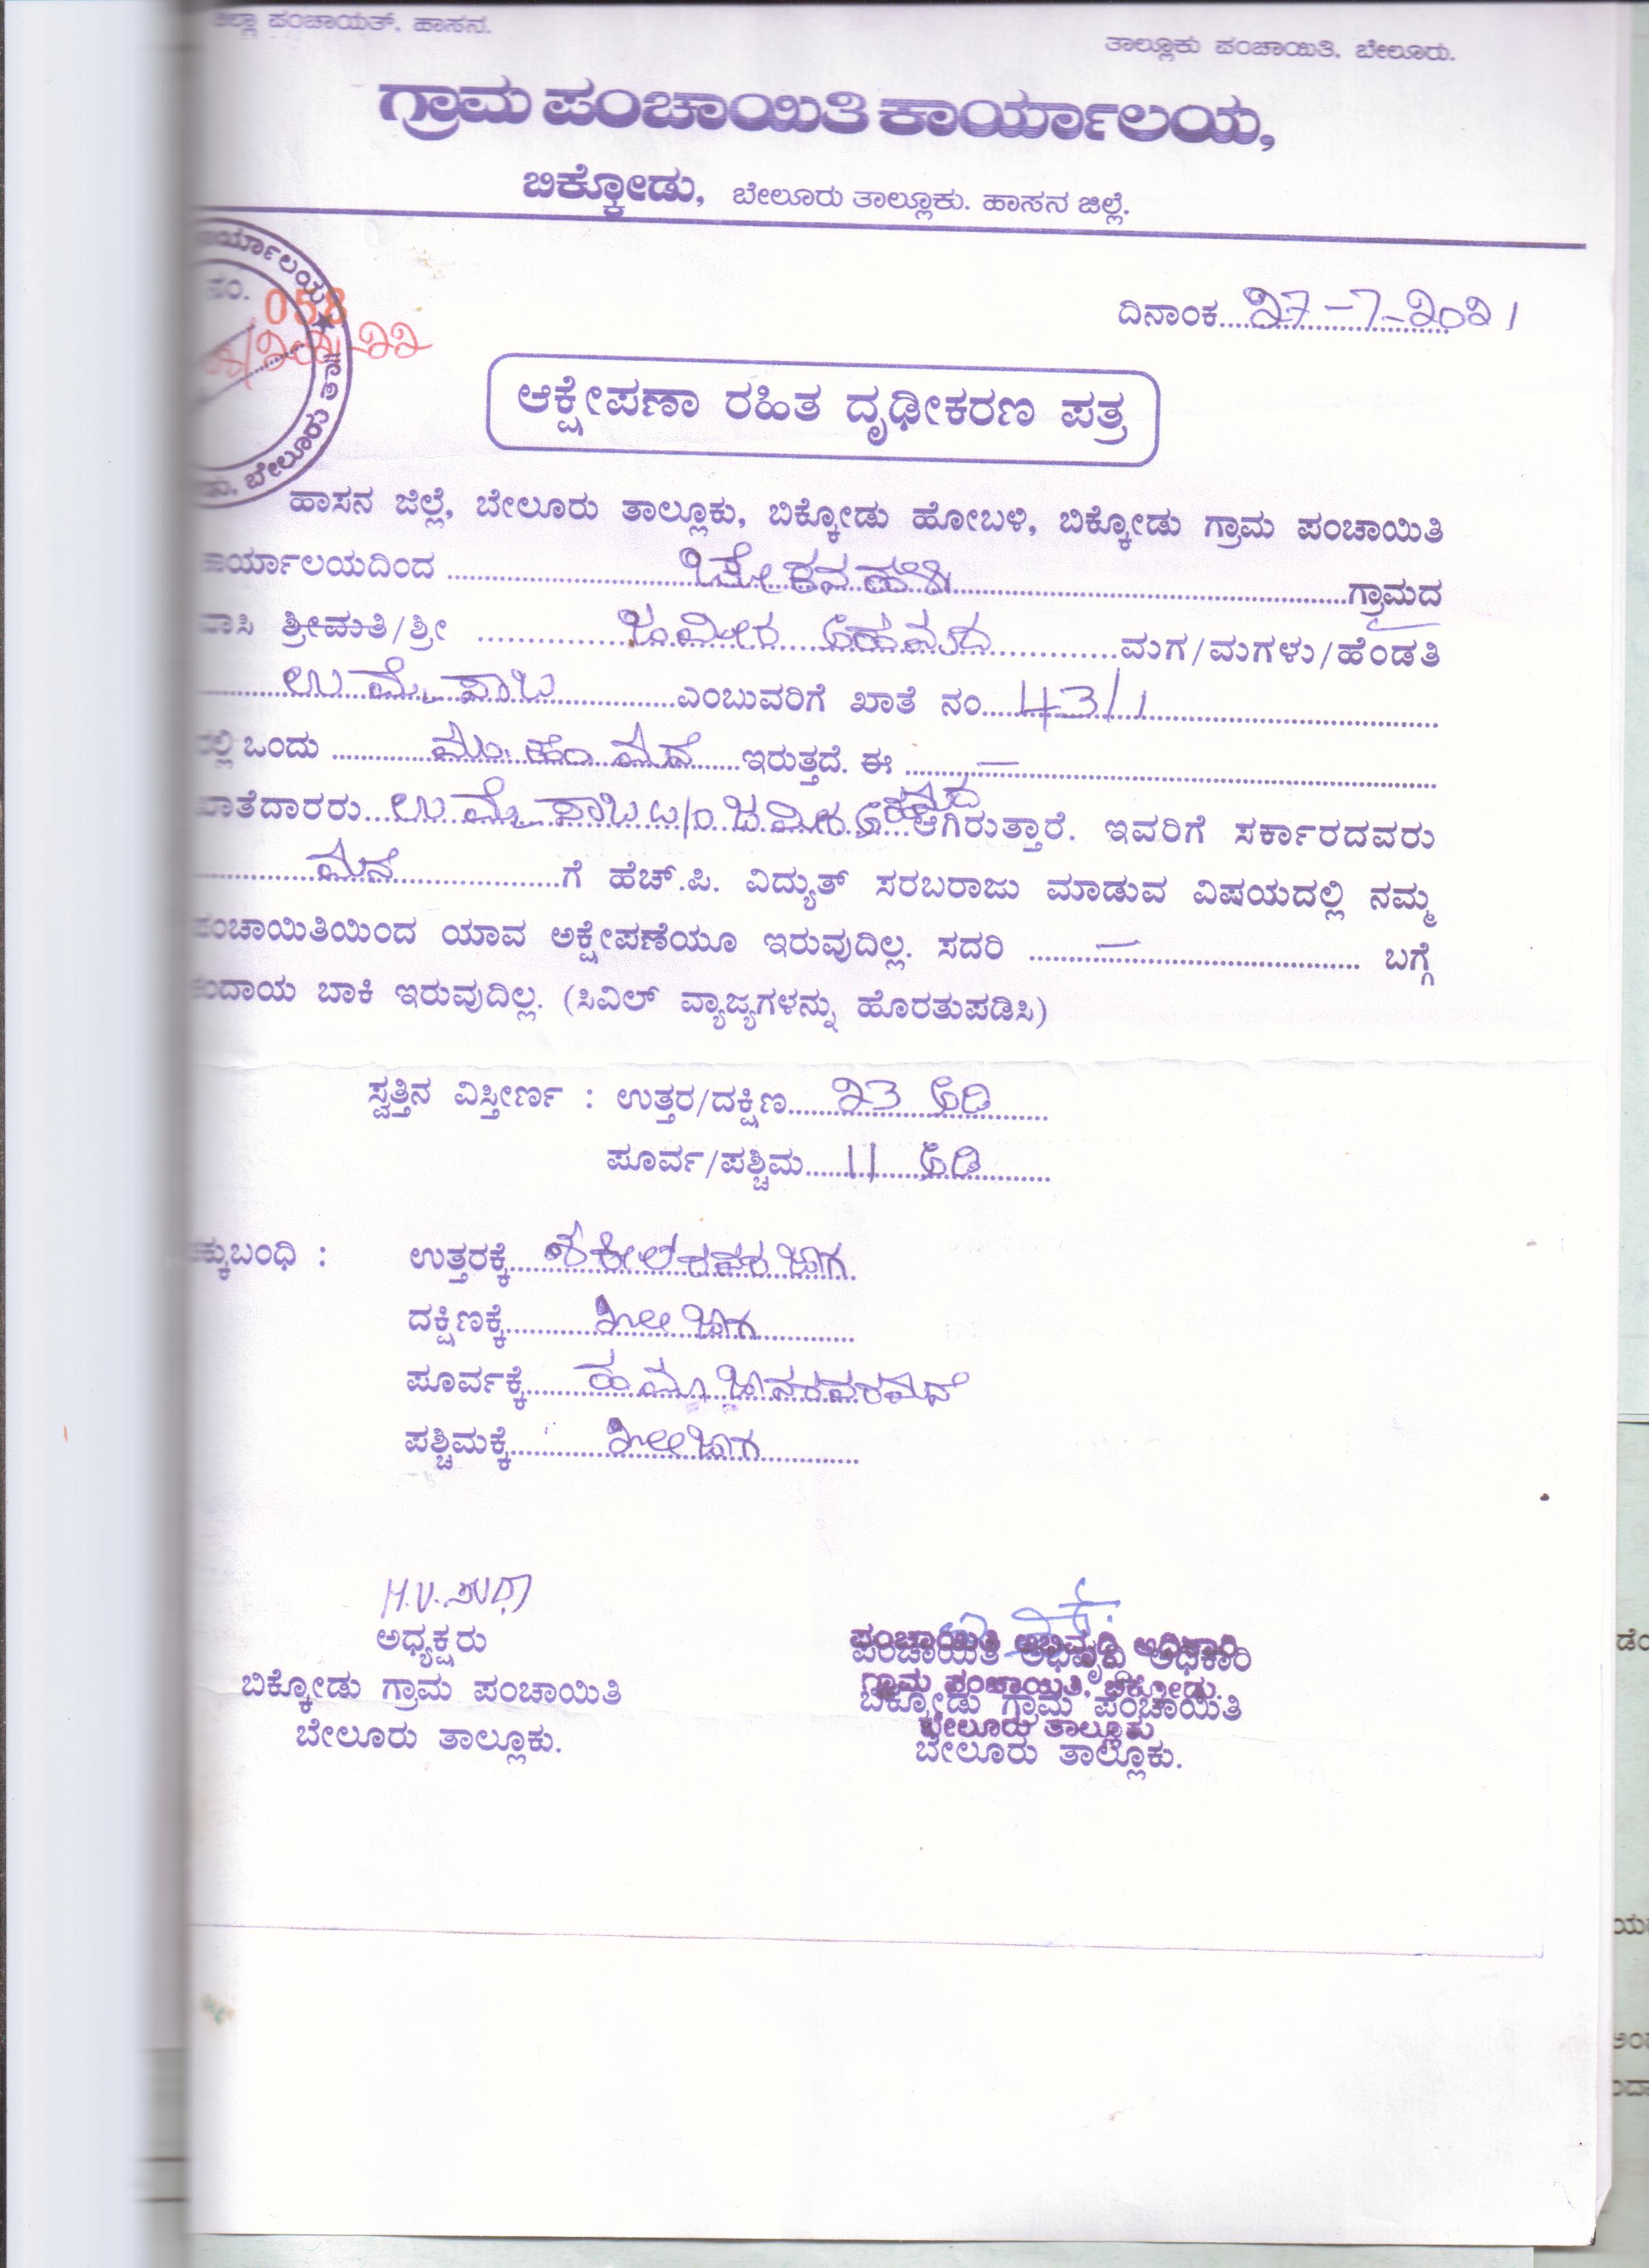 ಜಿಲ್ಲಾ ಪಂಚಾಯತ್. ಹಾಸನ.
ತಾಲ್ಲೂಕು ಪಂಚಾಯಿತಿ. ಬೇಲೂರು.
ಗ್ರಾಮ ಪಂಚಾಯಿತಿ ಕಾರ್ಯಾಲಯ,
ಬಿಕ್ಕೋಡು, ಬೇಲೂರು ತಾಲ್ಲೂಕು. ಹಾಸನ ಜಿಲ್ಲೆ.
ನಂ. 058
ದಿನಾಂಕ....27-7-2021
ಆಕ್ಷೇಪಣಾ ರಹಿತ ದೃಢೀಕರಣ ಪತ್ರ
ಹಾಸನ ಜಿಲ್ಲೆ, ಬೇಲೂರು ತಾಲ್ಲೂಕು, ಬಿಕ್ಕೋಡು ಹೋಬಳಿ, ಬಿಕ್ಕೋಡು ಗ್ರಾಮ ಪಂಚಾಯಿತಿ
ಕಾರ್ಯಾಲಯದಿಂದ ಗ್ರಾಮದ
ವಾಸಿ ಶ್ರೀಮತಿ/ಶ್ರೀ ಜಮೀರ ಅಹಮದ ಮಗ/ಮಗಳು/ಹೆಂಡತಿ
ಉಮ್ಮೆ ಎಂಬುವರಿಗೆ ಖಾತೆ ನಂ. 43/1
ರಲ್ಲಿ ಒಂದು ಮಂ. ಹೆಂ. ಮನೆ ಇರುತ್ತದೆ. ಈ —
ಖಾತೆದಾರರು ಉಮ್ಮೆ ಜಮೀರ ಅಹಮದ ಆಗಿರುತ್ತಾರೆ. ಇವರಿಗೆ ಸರ್ಕಾರದವರು
ಮನೆ ಗೆ ಹೆಚ್.ಪಿ. ವಿದ್ಯುತ್ ಸರಬರಾಜು ಮಾಡುವ ವಿಷಯದಲ್ಲಿ ನಮ್ಮ
ಪಂಚಾಯಿತಿಯಿಂದ ಯಾವ ಅಕ್ಷೇಪಣೆಯೂ ಇರುವುದಿಲ್ಲ. ಸದರಿ — ಬಗ್ಗೆ
ಕಂದಾಯ ಬಾಕಿ ಇರುವುದಿಲ್ಲ. (ಸಿವಿಲ್ ವ್ಯಾಜ್ಯಗಳನ್ನು ಹೊರತುಪಡಿಸಿ)
ಸ್ವತ್ತಿನ ವಿಸ್ತೀರ್ಣ : ಉತ್ತರ/ದಕ್ಷಿಣ 23 ಅಡಿ
ಪೂರ್ವ/ಪಶ್ಚಿಮ 11 ಅಡಿ
ಚಕ್ಕುಬಂಧಿ : ಉತ್ತರಕ್ಕೆ ಶಕೀಲ ರವರ ಜಾಗ
ದಕ್ಷಿಣಕ್ಕೆ ಜಾಗ
ಪೂರ್ವಕ್ಕೆ
ಪಶ್ಚಿಮಕ್ಕೆ ಜಾಗ
H.V. ಸುಧಾ
ಅಧ್ಯಕ್ಷರು
ಬಿಕ್ಕೋಡು ಗ್ರಾಮ ಪಂಚಾಯಿತಿ
ಬೇಲೂರು ತಾಲ್ಲೂಕು.
ಪಂಚಾಯಿತಿ ಅಭಿವೃದ್ಧಿ ಅಧಿಕಾರಿ
ಗ್ರಾಮ ಪಂಚಾಯಿತಿ, ಬಿಕ್ಕೋಡು.
ಬೇಲೂರು ತಾಲ್ಲೂಕು
ಪಂಚಾಯಿತಿ ಅಭಿವೃದ್ಧಿ ಅಧಿಕಾರಿ
ಬಿಕ್ಕೋಡು ಗ್ರಾಮ ಪಂಚಾಯಿತಿ
ಬೇಲೂರು ತಾಲ್ಲೂಕು.